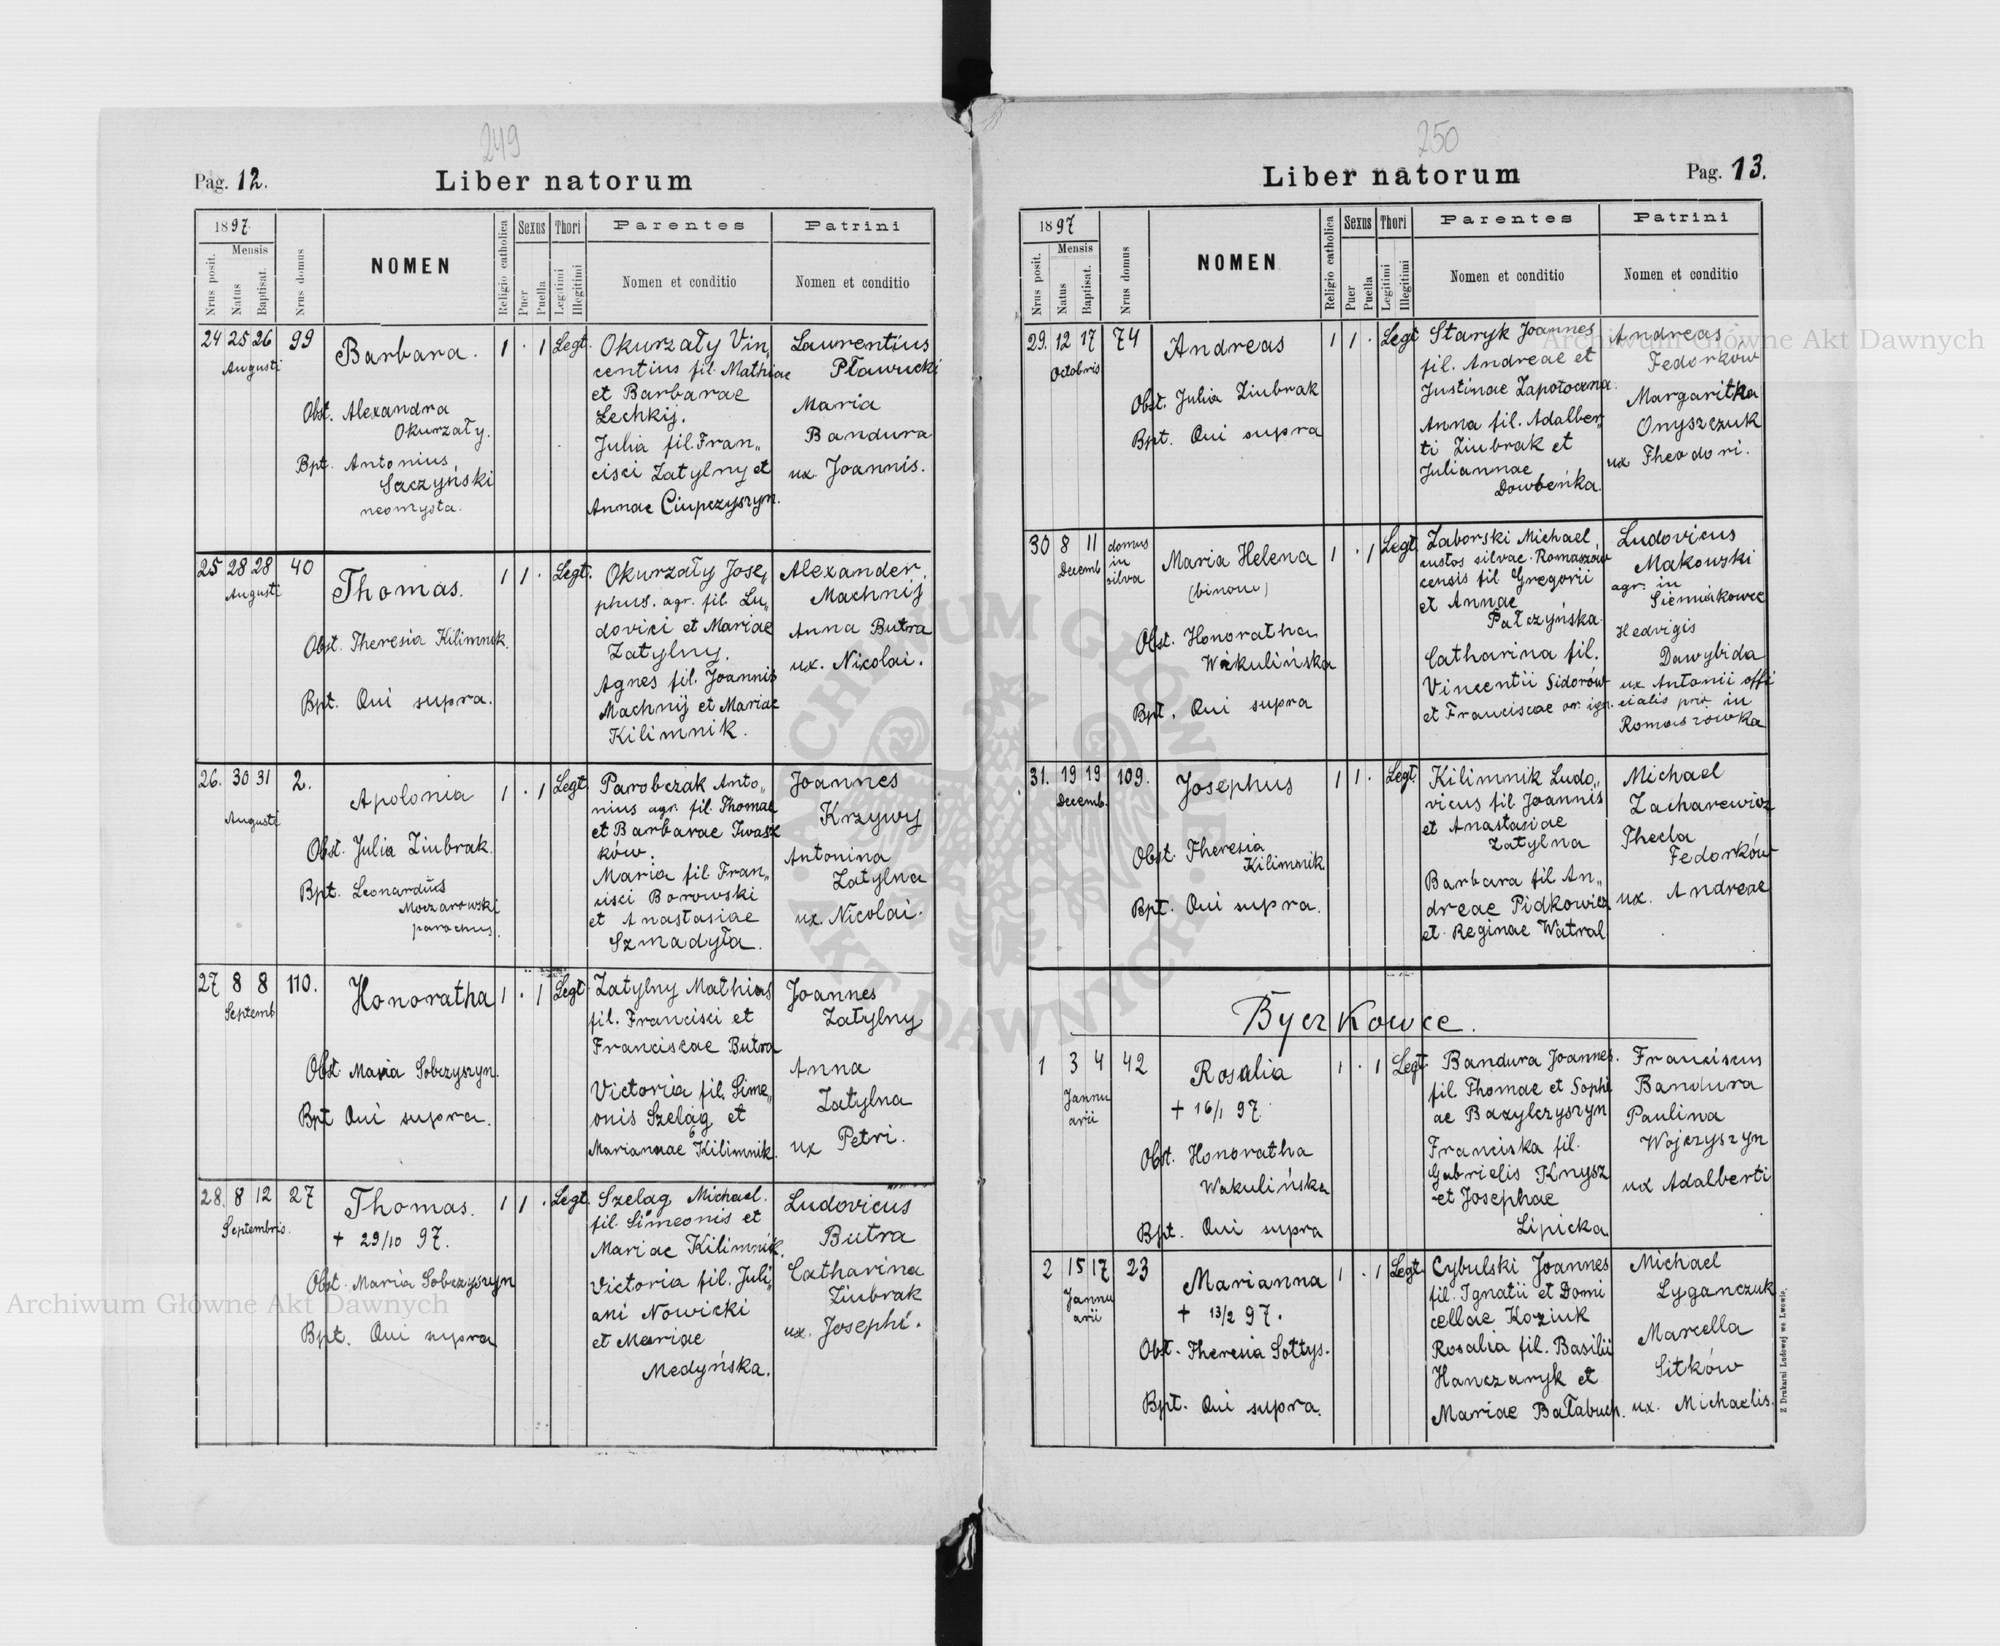 249
Pag. 12.
Liber natorum
1897
Mensis
Nrus posit.
Natus
Baptisat.
Nrus domus
NOMEN
Religio catholica
Sexus
Puer
Puella
Thori
Legitimi
Illegitimi
Parentes
Nomen et conditio
Patrini
Nomen et conditio
24 25 26 99
Augusti
Barbara.
1 . 1 Legt.
Obst. Alexandra
Okurzały.
Bpt. Antonius
Saczyński
neomysta.
Okurzały Vin„
centius fil. Mathiae
et Barbarae
Lechkij.
Julia fil. Fran„
cisci Zatylny et
Annae Ciupczyszyn.
Laurentius
Pławucki
Maria
Bandura
ux. Joannis.
25 28 28 40
Augusti
Thomas.
1 1 . Legt.
Obst. Theresia Kilimnik.
Bpt. Qui supra.
Okurzały Jose„
phus. agr. fil. Lu„
dovici et Mariae
Zatylny.
Agnes fil. Joannis
Machnij et Mariae
Kilimnik.
Alexander
Machnij
Anna Butra
ux. Nicolai.
26. 30 31 2.
Augusti
Apolonia
1 . 1 Legt
Obst. Julia Ziubrak.
Bpt. Leonardus
Moczarowski
parochus.
Parobczak Anto„
nius agr. fil. Thomae
et Barbarae Iwasz
ków.
Maria fil. Fran„
cisci Borowski
et Anastasiae
Szmadyła.
Joannes
Krzywy
Antonina
Zatylna
ux. Nicolai.
27 8 8 110.
Septemb
Honoratha
1 . 1 Legt.
Obst. Maria Sobczyszyn.
Bpt Qui supra.
Zatylny Mathias
fil. Francisci et
Franciscae Butra
Victoria fil. Sime„
onis Szeląg et
Mariannae Kilimnik.
Joannes
Zatylny
Anna
Zatylna
ux Petri.
28. 8 12 27
Septembris.
Thomas.
+ 29/10 97.
1 1 . Legt.
Obst. Maria Sobczyszyn
Bpt. Qui supra
Szeląg Michael.
fil. Simeonis et
Mariae Kilimnik.
Victoria fil. Juli„
ani Nowicki
et Mariae
Medyńska.
Ludovicus
Butra
Catharina
Ziubrak
ux. Josephi.
250
Liber natorum
Pag. 13.
1897
Mensis
Nrus posit.
Natus
Baptisat.
Nrus domus
NOMEN
Religio catholica
Sexus
Puer
Puella
Thori
Legitimi
Illegitimi
Parentes
Nomen et conditio
Patrini
Nomen et conditio
29. 12 17 74
Octobris
Andreas
1 1 . Legt
Obst. Julia Ziubrak
Bpt. Qui supra
Staryk Joannes
fil. Andreae et
Justinae Zapotoczna.
Anna fil. Adalber„
ti Ziubrak et
Juliannae
Dowbeńka.
Andreas
Fedorków
Margaritka
Onyszczuk
ux Theodori.
30 8 11 domus
in
silva
Decemb
Maria Helena
(binom)
1 . 1 Legt.
Obst. Honoratha
Wakulińska
Bpt. Qui supra
Zaborski Michael
custos silvae Romaszów
censis fil Gregorii
et Annae
Pałczyńska.
Catharina fil.
Vincentii Sidorów
et Franciscae or. ign.
Ludovicus
Makowski
agr. in
Siemiakowce
Hedvigis
Dawybida
ux Antonii offi
cialis priv in
Romaszówka
31. 19 19 109.
Decemb.
Josephus
1 1 . Legt.
Obst. Theresia
Kilimnik
Bpt. Qui supra.
Kilimnik Ludo„
vicus fil Joannis
et Anastasiae
Zatylna
Barbara fil An„
dreae Pidkowicz
et Reginae Watral
Michael
Zacharewicz
Thecla
Fedorków
ux. Andreae
Byczkowce.
1 3 4 42
Jannu
arii
Rosalia
+ 16/1 97.
1 . 1 Legt.
Obst. Honoratha
Wakulińska
Bpt. Qui supra
Bandura Joannes.
fil Thomae et Sophi
ae Bazylczyszyn
Franciska fil.
Gabrielis Knysz
et Josephae
Lipicka
Franciscus
Bandura
Paulina
Wojczyszyn
ux Adalberti
2 15 17 23
Jannu
arii
Marianna
+ 13/2 97.
1 . 1 Legt.
Obst. Theresia Sołtys.
Bpt. Qui supra.
Cybulski Joannes
fil. Ignatii et Domi
cellae Koziuk
Rosalia fil. Basilii
Hanczaryk et
Mariae Bałabuch.
Michael
Cyganczuk
Marcella
Sitków
ux. Michaelis.
Z Drukarni Ludowej we Lwowie.
Archiwum Główne Akt Dawnych
Archiwum Główne Akt Dawnych
ARCHIWUM GŁÓWNE
AKT DAWNYCH